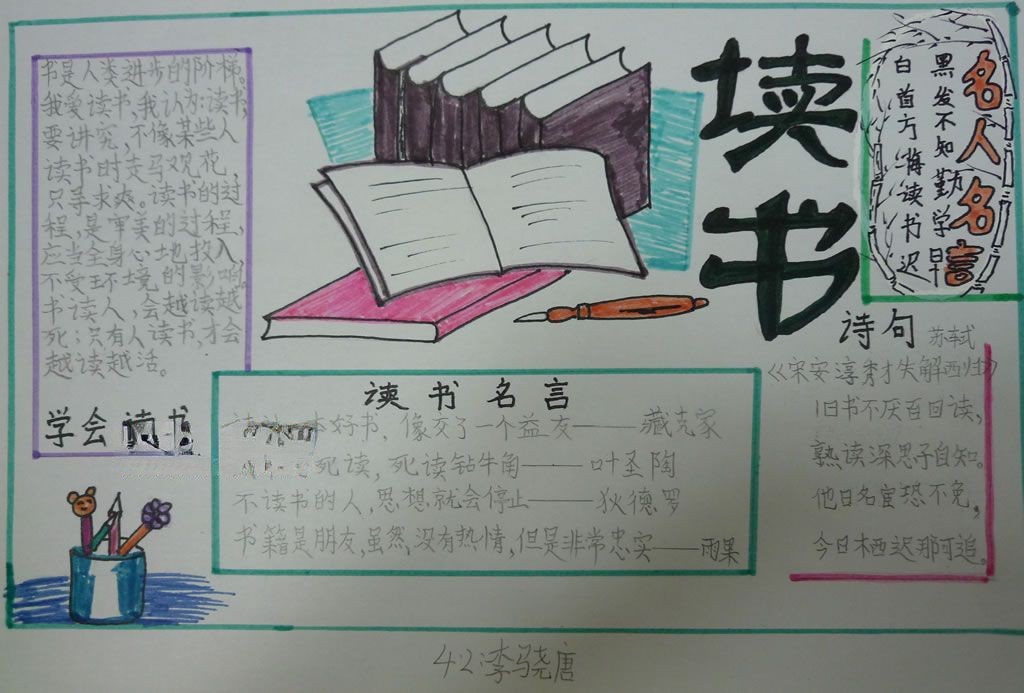 书是人类进步的阶梯。
我爱读书,我认为:读书,
要讲究,不像某些人
读书时走马观花,
只手求爽。读书的过
程,是审美的过程,
应当全身心地投入,
不受环境的影响。
书读人,会越读越
死;只有人读书,才会
越读越活。
学会读书
读书
名人名言
黑发不知勤学早
白首方悔读书迟
读书名言
本好书,像交了一个益友——臧克家
死读,死读钻牛角——叶圣陶
不读书的人,思想就会停止——狄德罗
书籍是朋友,虽然,没有热情,但是非常忠实——雨果
诗句 苏轼
《宋安淳秀才失解西归》
旧书不厌百回读,
熟读深思子自知。
他日名宦恐不免,
今日栖迟那可追。
4.2:李骁唐